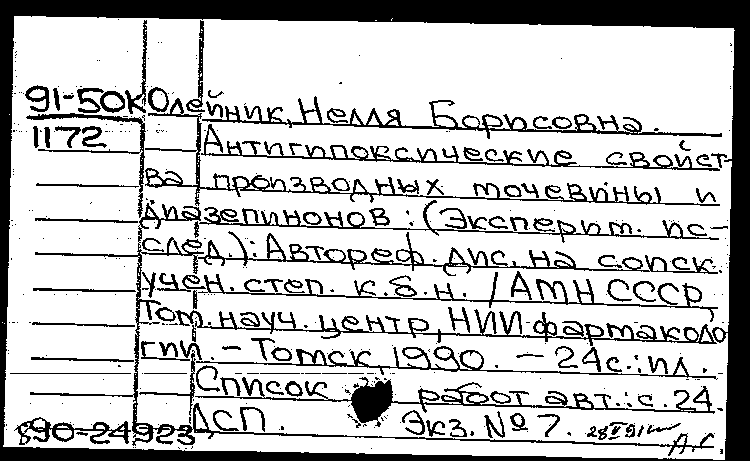 91-50к Олейник, Нелля Борисовна.
1172 Антигипоксические свойст-
ва производных мочевины и
диазепинонов : (Эксперим. ис-
след.): Автореф. дис. на соиск.
учен. степ. к.б.н. / АМН СССР,
Том. науч. центр, НИИ фармаколо
гии. – Томск, 1990. – 24с.: ил.
Список работ авт.: с. 24.
ДСП. Экз. № 7.
890-24923